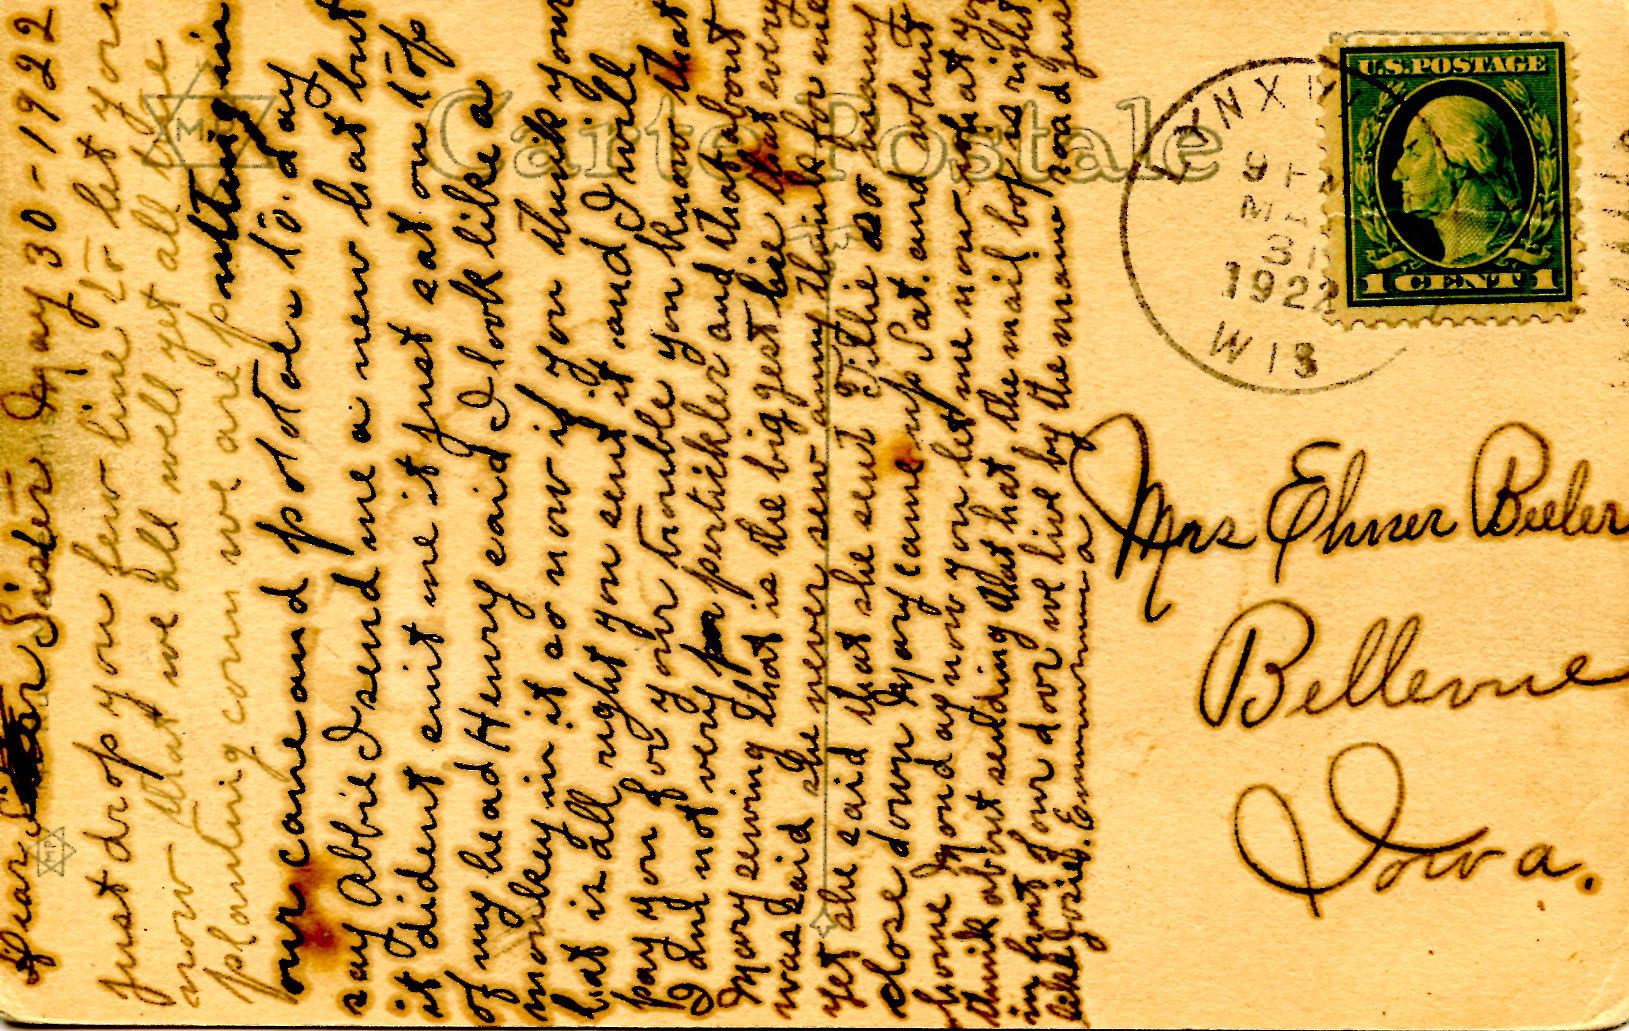 May 30 - 1922
Dear Sister
Just drop you few line to let you
now that we all well yet all the
planting corn we are putting in
our corn and potatoes to day
say Abbie I send me a new hat but
it dident suit me it just sat on top
of my head Henry said I look like a
monkey in it so now if you think your
hat is all right you sent it and I will
pay you for your trouble you know that
I am not very pertickler and that about
Mary sewing that is the biggest lie that every
was said she never sew any think for me
yet she said that she sent Tillie so many
close down Mary came up Sat. and when't
home Monday now you let me now what you
think about sending that hat the mail box is right
in front of our door we live by the main road just
like Josie. Emma
Carte Postale
MP
LYNXVILLE
9 AM
MAY
31
1922
WIS
U.S. POSTAGE
1 CENT 1
Mrs Elmer Beeler
Bellevue
Iowa.